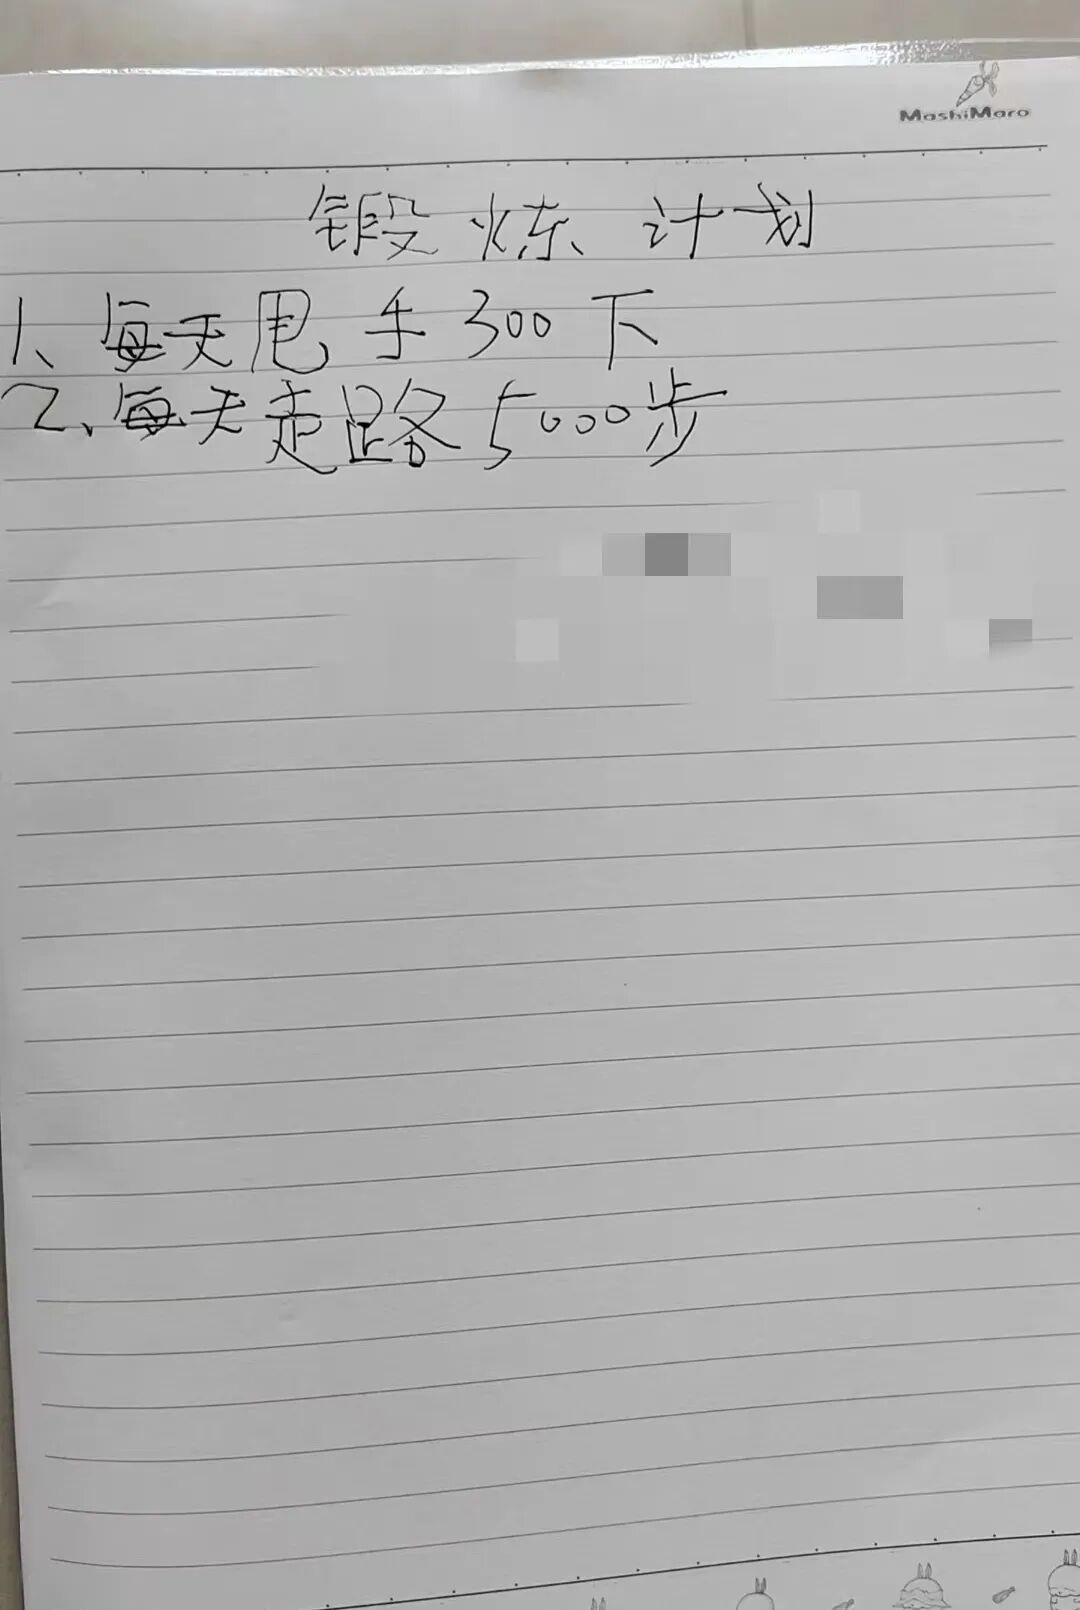 MashiMaro
锻炼计划
1、每天甩手300下
2、每天走路5000步